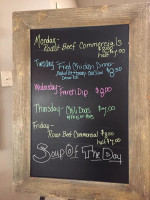 Monday-
Roast Beef Commercials
$8.00
half
Tuesday Fried Chicken Dinner
$8.50
Wednesday French Dip $8.00
Thursday- Chili Dogs $7.00
Friday-
Roast Beef Commercial $8.00
half $7.00
Soup Of The Day